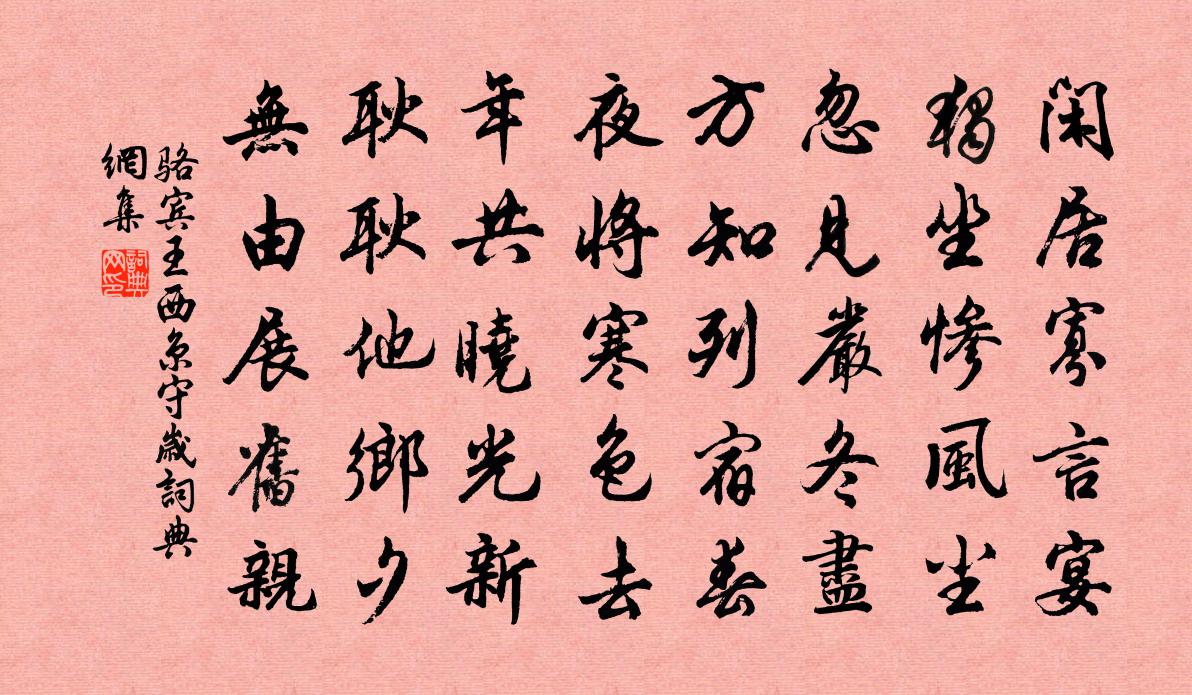 閑居寡言宴
獨坐慘風尘
忽見嚴冬盡
方知列宿春
夜將寒色去
年共曉光新
耿耿他鄉夕
無由展舊親
骆宾王西京守歲詞典
網集
詞典网印